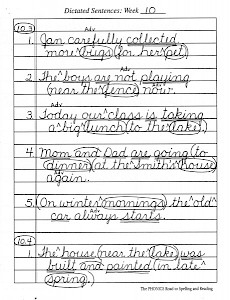 Dictated Sentences: Week 10
10.3
Adv
1. Jan carefully collected
more bugs (for her pet).
Adv
2. The boys are not playing
(near the fence) now.
Adv
3. Today our class is taking
a big lunch (to the lake).
4. Mom and Dad are going (to
dinner) (at the Smith's house)
Adv
again.
5. (On winter mornings) the old
Adv
car always starts.
10.4
1. The house (near the lake) was
built and painted (in late
spring).
The PHONICS Road to Spelling and Reading